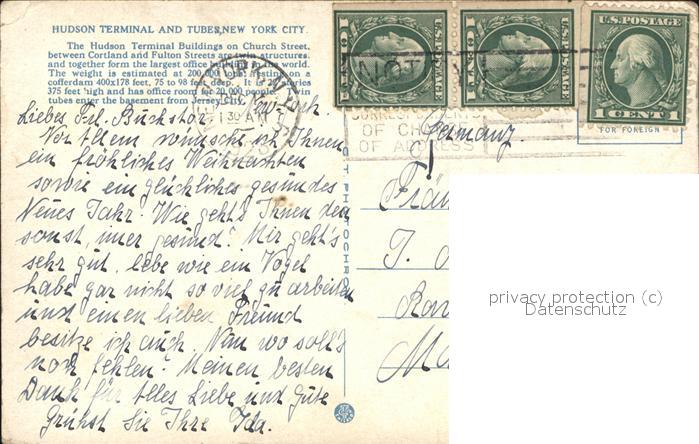 HUDSON TERMINAL AND TUBES, NEW YORK CITY.
The Hudson Terminal Buildings on Church Street,
between Cortland and Fulton Streets are twin structures,
and together form the largest office building in the world.
The weight is estimated at 200,000 tons; resting on a
cofferdam 400x178 feet, 75 to 98 feet deep. It is 22 stories
375 feet high and has office room for 20,000 people. Twin
tubes enter the basement from Jersey City.
U.S. POSTAGE
1 ONE 1
U.S. POSTAGE
1 ONE 1
U.S. POSTAGE
1 CENT 1
NOTIFY
CORRESPONDENTS
OF CHANGE
OF ADDRESS
FOR FOREIGN
New-York
Liebes Frl. Buckstor
Vor Allem wünsche ich Ihnen
ein fröhliches Weihnachten
sowie ein glückliches gesundes
Neues Jahr. Wie geht's Ihnen den
sonst, imer gesund? Mir geht's
sehr gut, lebe wie ein Vogel
habe gar nicht so viel zu arbeiten
und einen lieben Freund
besitze ich auch. Nan wo soll's
noch fehlen? Meinen besten
Dank für Alles Liebe und Gute
Grühst Sie Ihre Ida.
Germany.
Fräu
J.
Ra
Ma
privacy protection (c)
Datenschutz